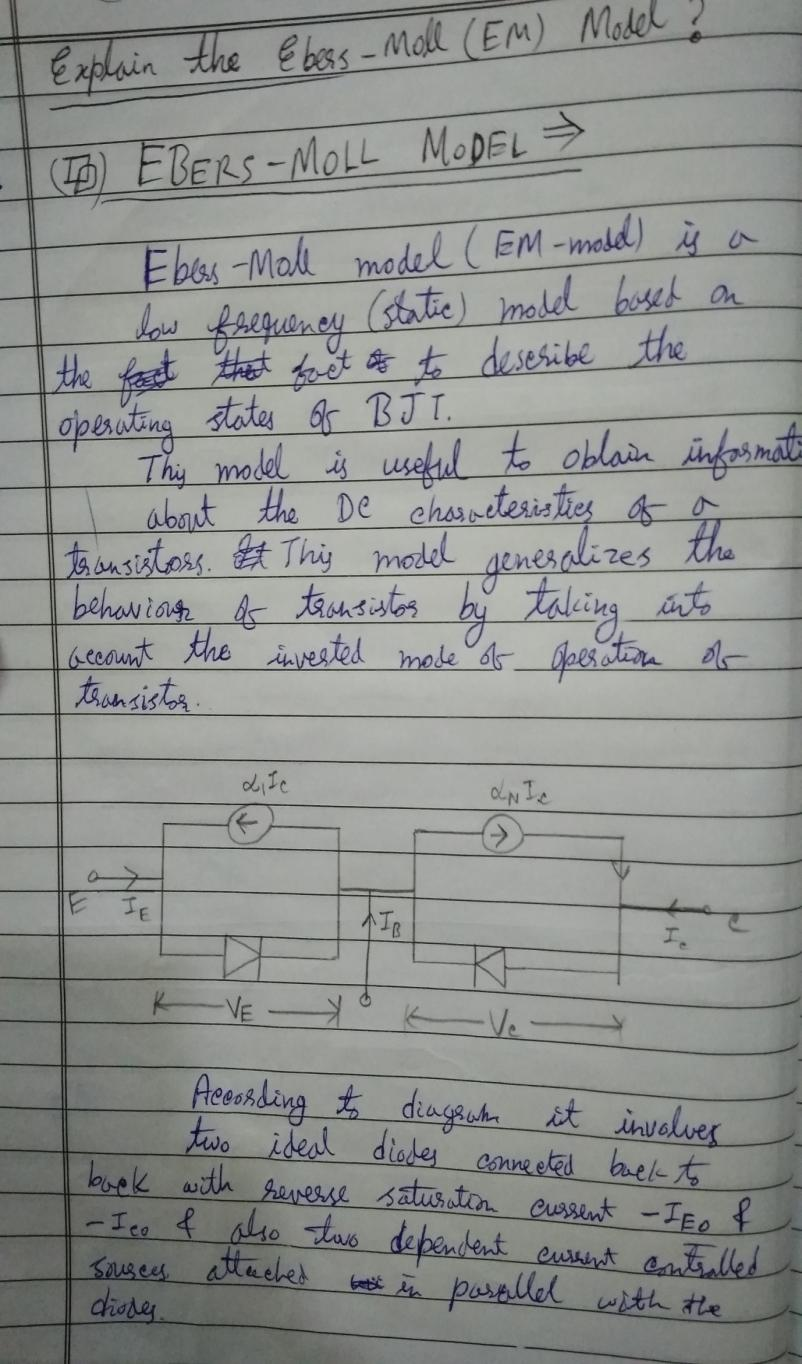 Explain the Ebers-Moll (EM) Model?
EBERS-MOLL MODEL ⇒
Ebers-Moll model (EM-model) is a
low frequency (static) model based on
the fact to describe the
operating states of BJT.
This model is useful to obtain informati
about the DC characteristics of a
transistors. This model generalizes the
behaviour of transistor by taking into
account the inverted mode of operation of
transistor.
α₁Ic
αN Ic
E
IE
IB
Ic
C
VE
Vc
According to diagram it involves
two ideal diodes connected back to
back with reverse saturation current -IEO &
-Ico & also two dependent current controlled
sources attached in parallel with the
diodes.